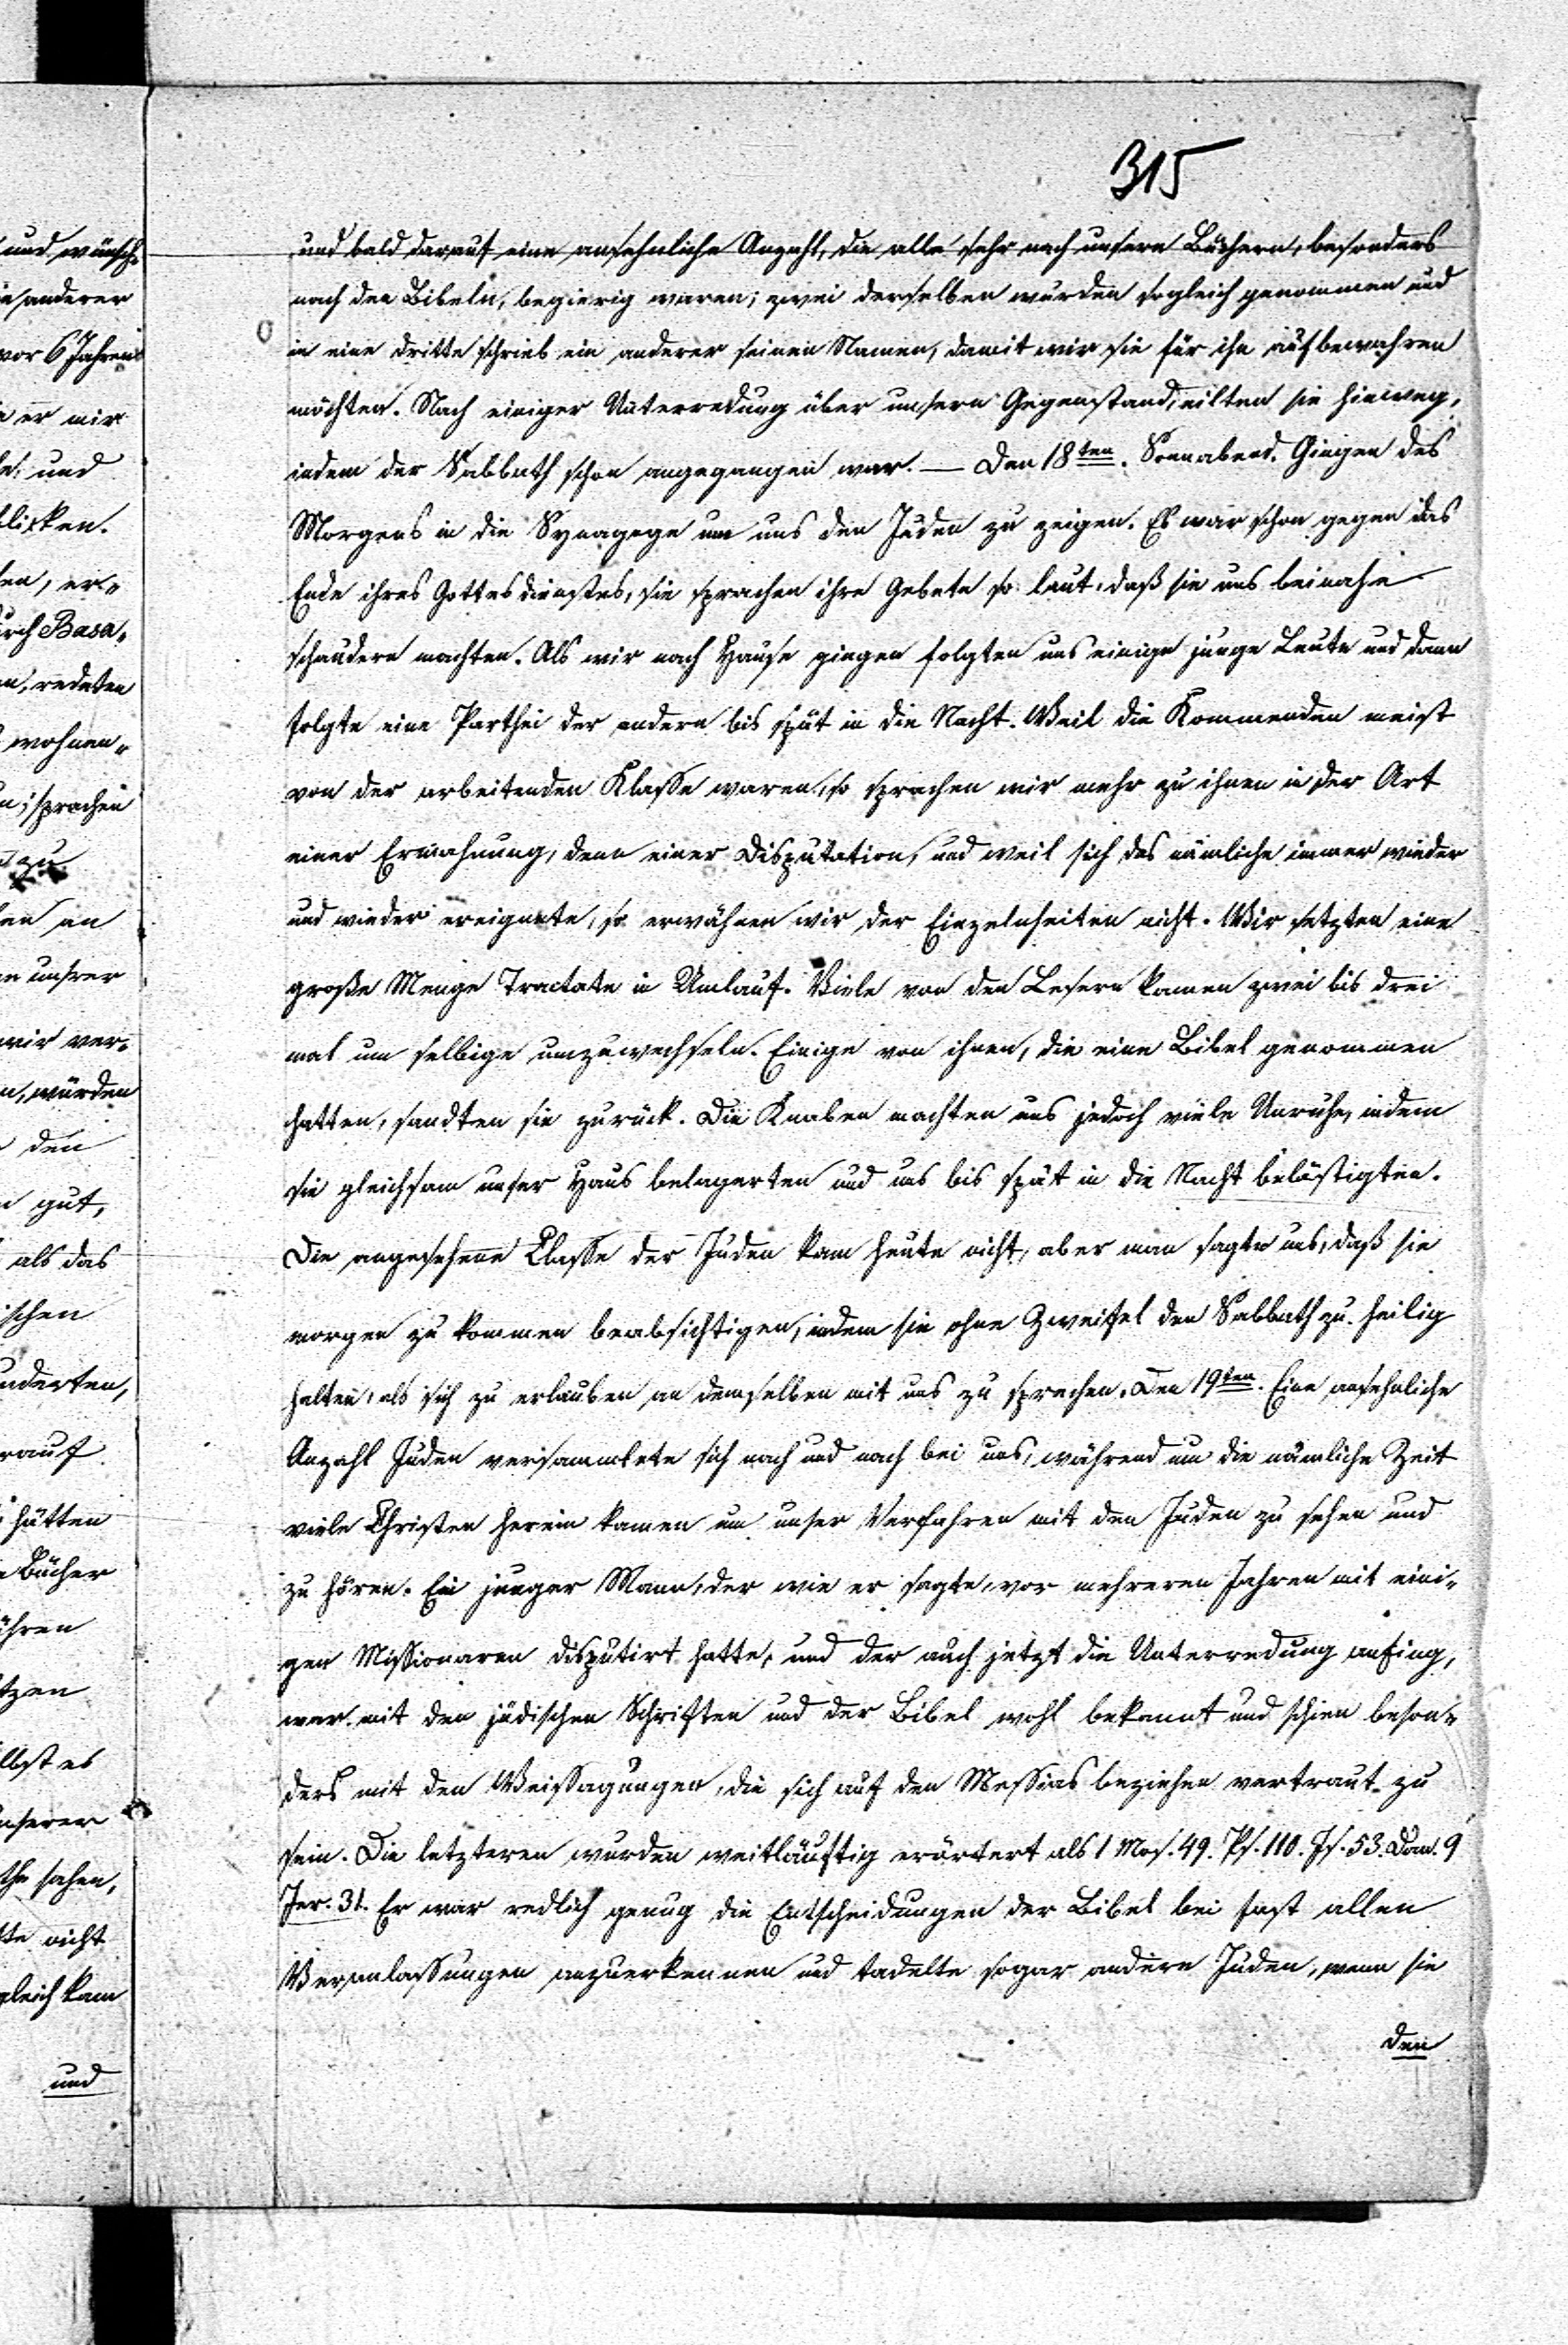 315
und wünsch-
und bald darauf eine ansehnliche Anzahl, die alle sehr nach unsern Büchern, besonders
anderer
nach den Bibeln, begierig waren; zwei derselben wurden sogleich genommen und
vor 6 Jahren
in eine dritte schrieb ein anderer seinen Namen, damit wir sie für ihn aufbewahren
er mir
möchten. Nach einiger Unterredung über unsern Gegenstand, eilten sie hinweg,
und
indem der Sabbath schon angegangen war. — Den 18ten. Sonnabend. Gingen des
Morgens in die Synagoge um uns den Juden zu zeigen. Es war schon gegen das
Ende ihres Gottesdienstes, sie sprachen ihre Gebete so laut, daß sie uns beinahe
schaudern machten. Als wir nach Hause gingen folgten uns einige junge Leute und dann
redeten
folgte eine Parthei der andern bis spät in die Nacht. Weil die Kommenden meist
wohnen-
von der arbeitenden Klasse waren, so sprachen wir mehr zu ihnen in der Art
sprachen
einer Ermahnung, denn einer Disputation, und weil sich das nämliche immer wieder
zu
und wieder ereignete, so erwähnen wir der Einzelnheiten nicht. Wir setzten eine
an
große Menge Tractate in Umlauf. Viele von den Lesern kamen zwei bis drei
unsrer
mal um selbige umzuwechseln. Einige von ihnen, die eine Bibel genommen
wir ver-
hatten, sandten sie zurück. Die Knaben machten uns jedoch viele Unruhe, indem
würden
sie gleichsam unser Haus belagerten und uns bis spät in die Nacht belästigten.
den
gut,
Die angesehene Classe der Juden kam heute nicht, aber man sagte uns, daß sie
als das
morgen zu kommen beabsichtigen, indem sie ohne Zweifel den Sabbath zu heilig
halten, als sich zu erlauben an demselben mit uns zu sprechen. Den 19ten. Eine ansehnliche
Anzahl Juden versammlete sich nach und nach bei uns, während um die nämliche Zeit
viele Christen herein kamen um unser Verfahren mit den Juden zu sehen und
hätten
zu hören. Ein junger Mann, der wie er sagte, vor mehreren Jahren mit eini-
Bücher
gen Missionaren disputirt hatte, und der auch jetzt die Unterredung anfing,
war mit den jüdischen Schriften und der Bibel wohl bekannt und schien beson-
ders mit den Weissagungen, die sich auf den Messias beziehen vertraut zu
sein. Die letzteren wurden weitläuftig erörtert als 1 Mos. 49. Ps. 110. Js. 53. Dan. 9
sahen,
Jer. 31. Er war redlich genug die Entscheidungen der Bibel bei fast allen
nicht
Veranlassungen anzuerkennen und tadelte sogar andere Juden, wenn sie
kam
den
und